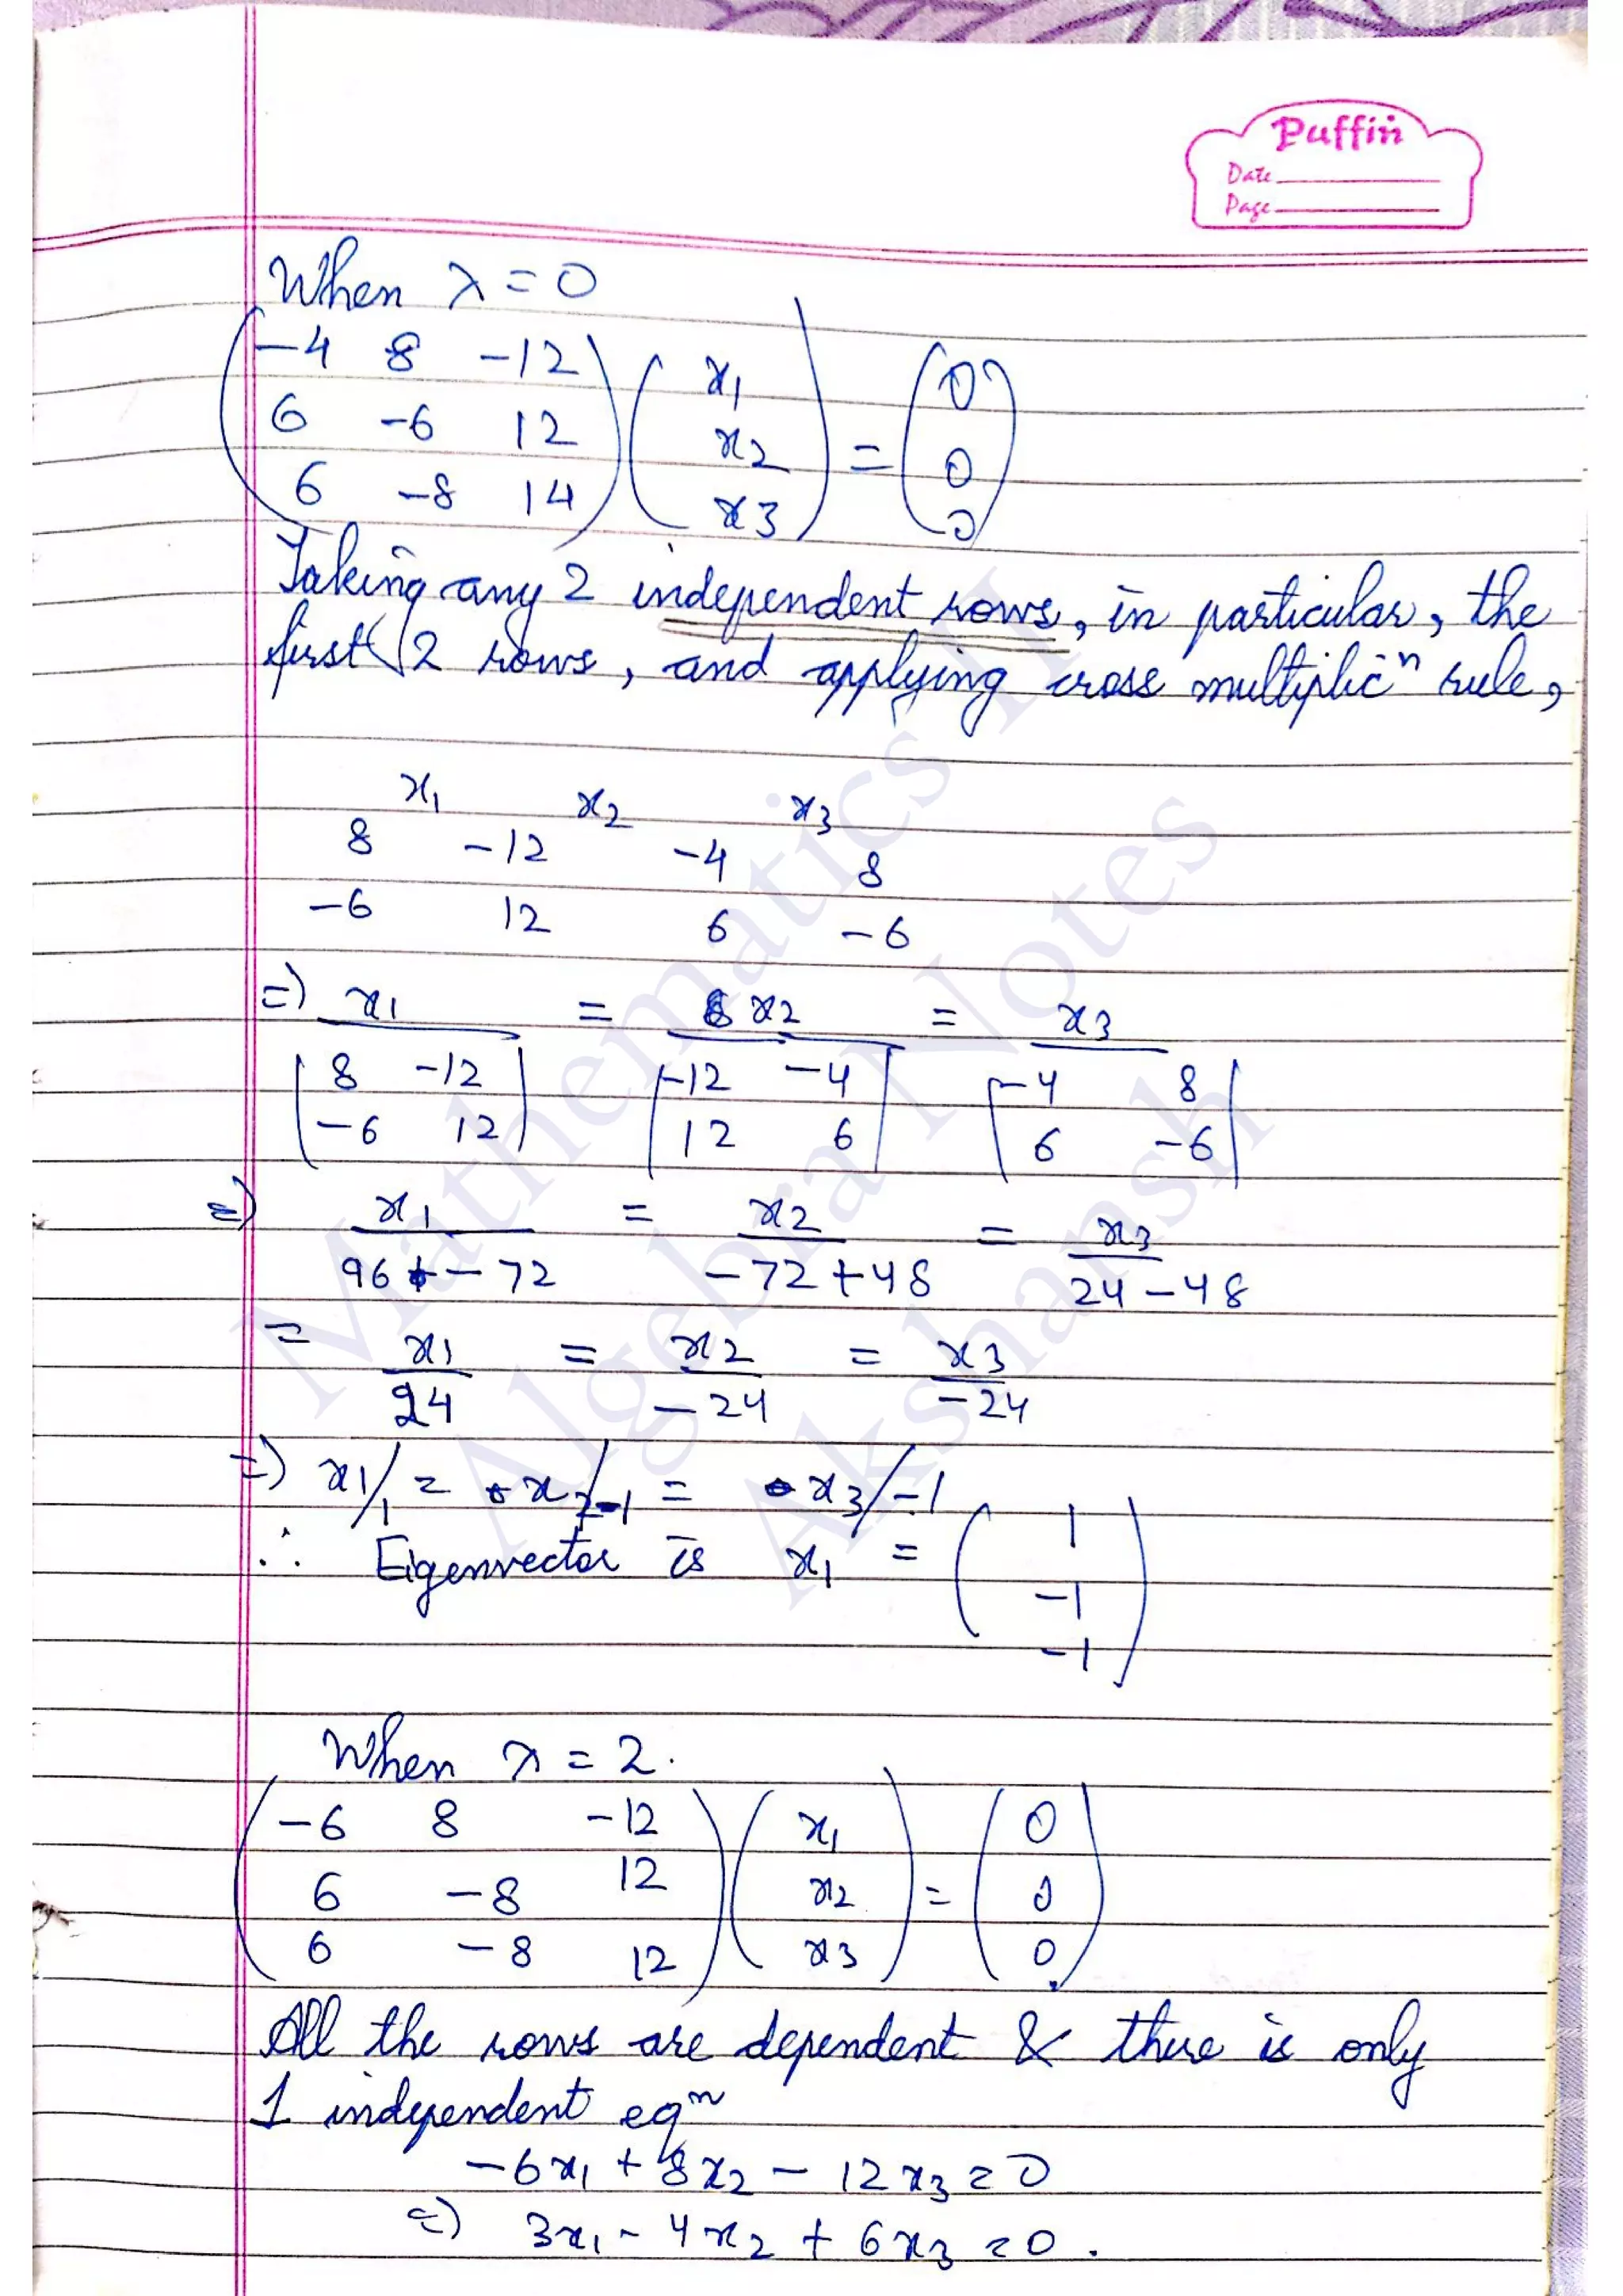 Puffin
Date
Page
When λ = 0
-4 8 -12
6 -6 12
6 -8 14
x1
x2
x3
=
0
0
0
Taking any 2 independent rows, in particular, the
first 2 rows, and applying cross multiplicⁿ rule,
x1 x2 x3
8 -12 -4 8
-6 12 6 -6
=) x1 = x2 = x3
8 -12 -12 -4 -4 8
-6 12 12 6 6 -6
=) x1 = x2 = x3
96 - 72 -72 + 48 24 - 48
= x1 = x2 = x3
24 -24 -24
=) x1/1 = x2/-1 = x3/-1
∴ Eigenvector is x1 =
1
-1
-1
When λ = 2.
-6 8 -12
6 -8 12
6 -8 12
x1
x2
x3
=
0
0
0
All the rows are dependent & there is only
1 independent eqⁿ
-6x1 + 8x2 - 12x3 = 0
=) 3x1 - 4x2 + 6x3 = 0.
Mathematics II
Algebra Notes
Akshansh